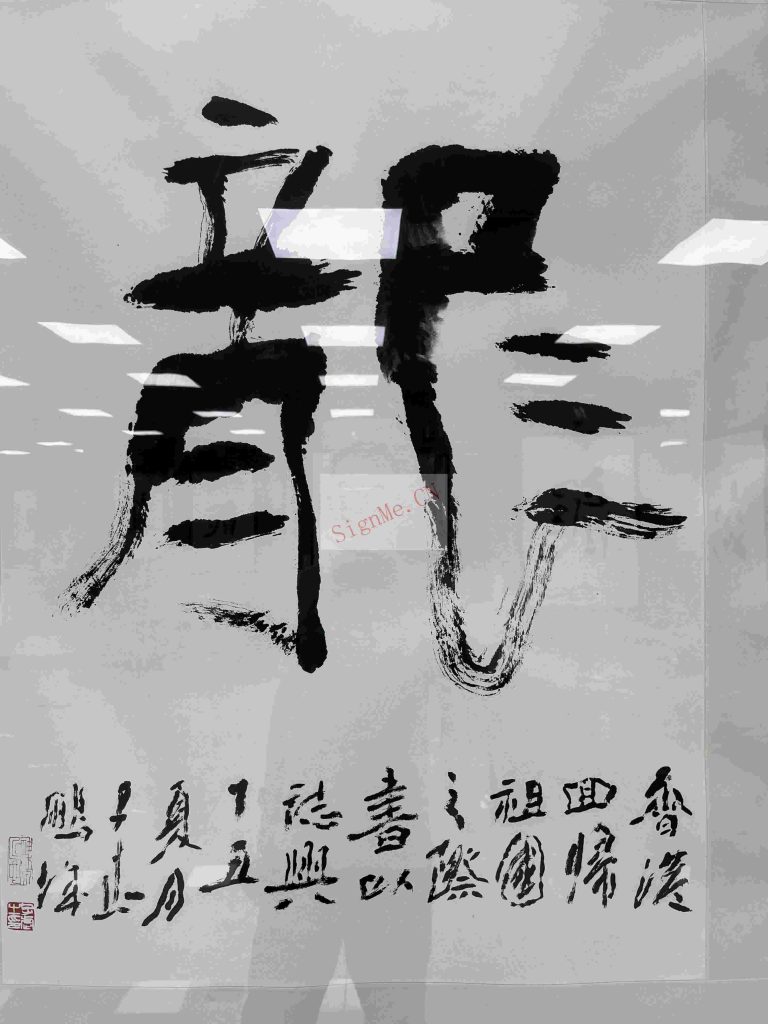 龍
香港
回歸
祖國
之際
書以
誌興
丁丑
夏月
SignMe.CN